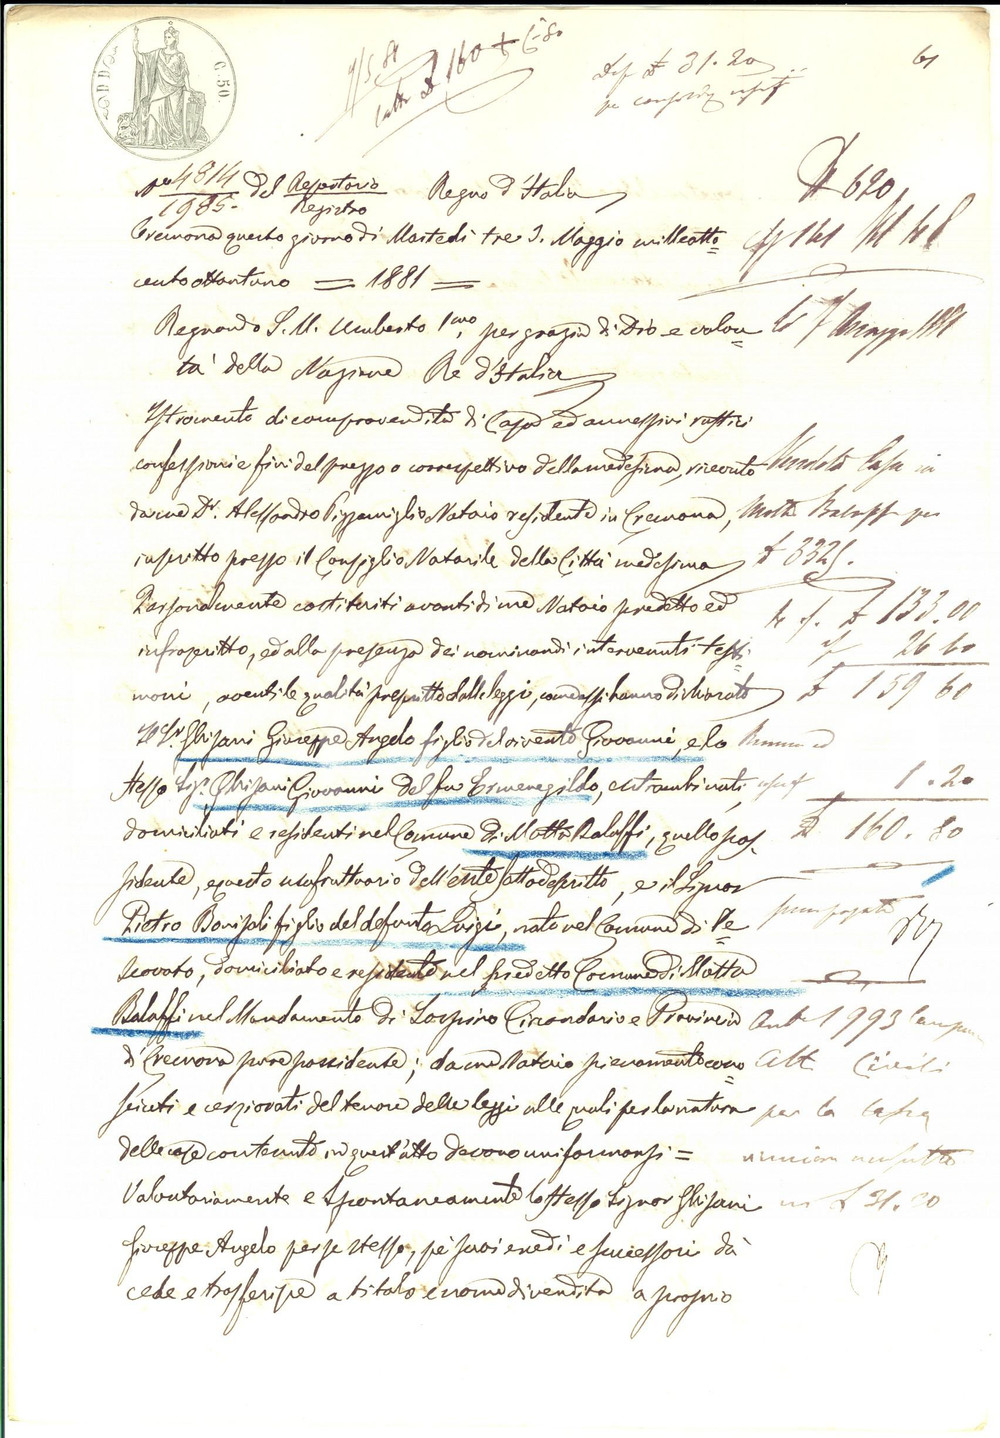 C. 50.
9/5 81
160
31.20
No 4314 del Repertorio Regno d'Italia
1985. Registro
£ 620
Cremona questo giorno di Martedì tre 3. Maggio milleotto=
cento ottantuno = 1881 =
Regnando S. M. Umberto Imo, per grazia di Dio e volon=
tà della Nazione Re d'Italia
li 7 Maggio 1881
Istromento di compravendita di Casa ed annessivi rustici
confessioni e fini del prezzo o correspettivo della medesima, ricevuto
da me Dr. Alessandro Pizzamiglio Notaio residente in Cremona,
inscritto presso il Consiglio Notarile della Città medesima
Vendita Casa in
Motta Baluffi per
£ 3325.
Personalmente costituiti avanti di me Notaio predetto ed
infrascritto, ed alla presenza dei nominandi intervenuti testi=
moni, aventi le qualità prescritte dalle leggi, come essi hanno dichiarato
£ 133.00
26 60
£ 159 60
Il Sr. Ghisani Giuseppe Angelo figlio del vivente Giovanni, e lo
stesso Sigr. Ghisani Giovanni del fu Ermenegildo, entrambi nati,
domiciliati e residenti nel Comune di Motta Baluffi, quello pos=
sidente, e questo usufruttuario dell'ente sottodescritto, e il Signor
1.20
£ 160.80
Pietro Bonisoli figlio del defunto Luigi, nato nel Comune di Pe
scovato, domiciliato e residente nel predetto Comune di Motta
Baluffi nel Mandamento di Sospiro Circondario e Provincia
di Cremona pure possidente; da me Notaio pienamente cono=
sciuti e cerziorati del tenore delle leggi alle quali per la natura
delle cose contenute in quest'atto devono uniformarsi =
1993
Atti Civili
per la tassa
in £ 31.20
Volontariamente e spontaneamente lo stesso Signor Ghisani
Giuseppe Angelo per se stesso, pe' suoi eredi e successori dà
cede e trasferisce a titolo e nome di vendita a proprio